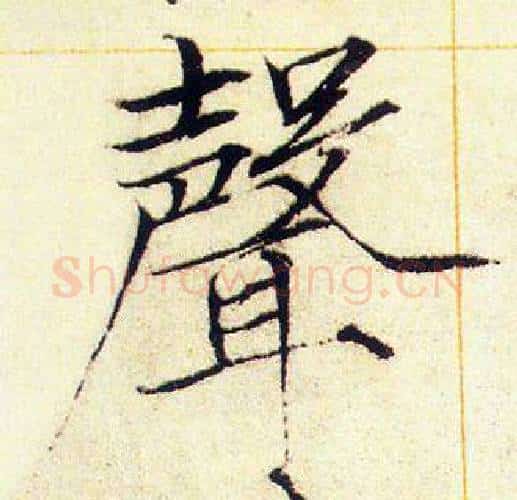 聲
Shufawang.CN